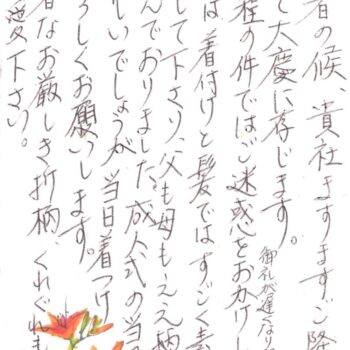 者の候、貴社ますますご隆
て大慶に存じます。
御礼が遅なり
程の件ではご迷惑をおかけし
は着付けと髪ではすごく素
して下さり、父も母もええ柄
んでおりました。成人式の当
しいでしょうが当日着つけ
ろしくお願いします。
暑なお厳しき折柄、くれぐれも
愛下さい。